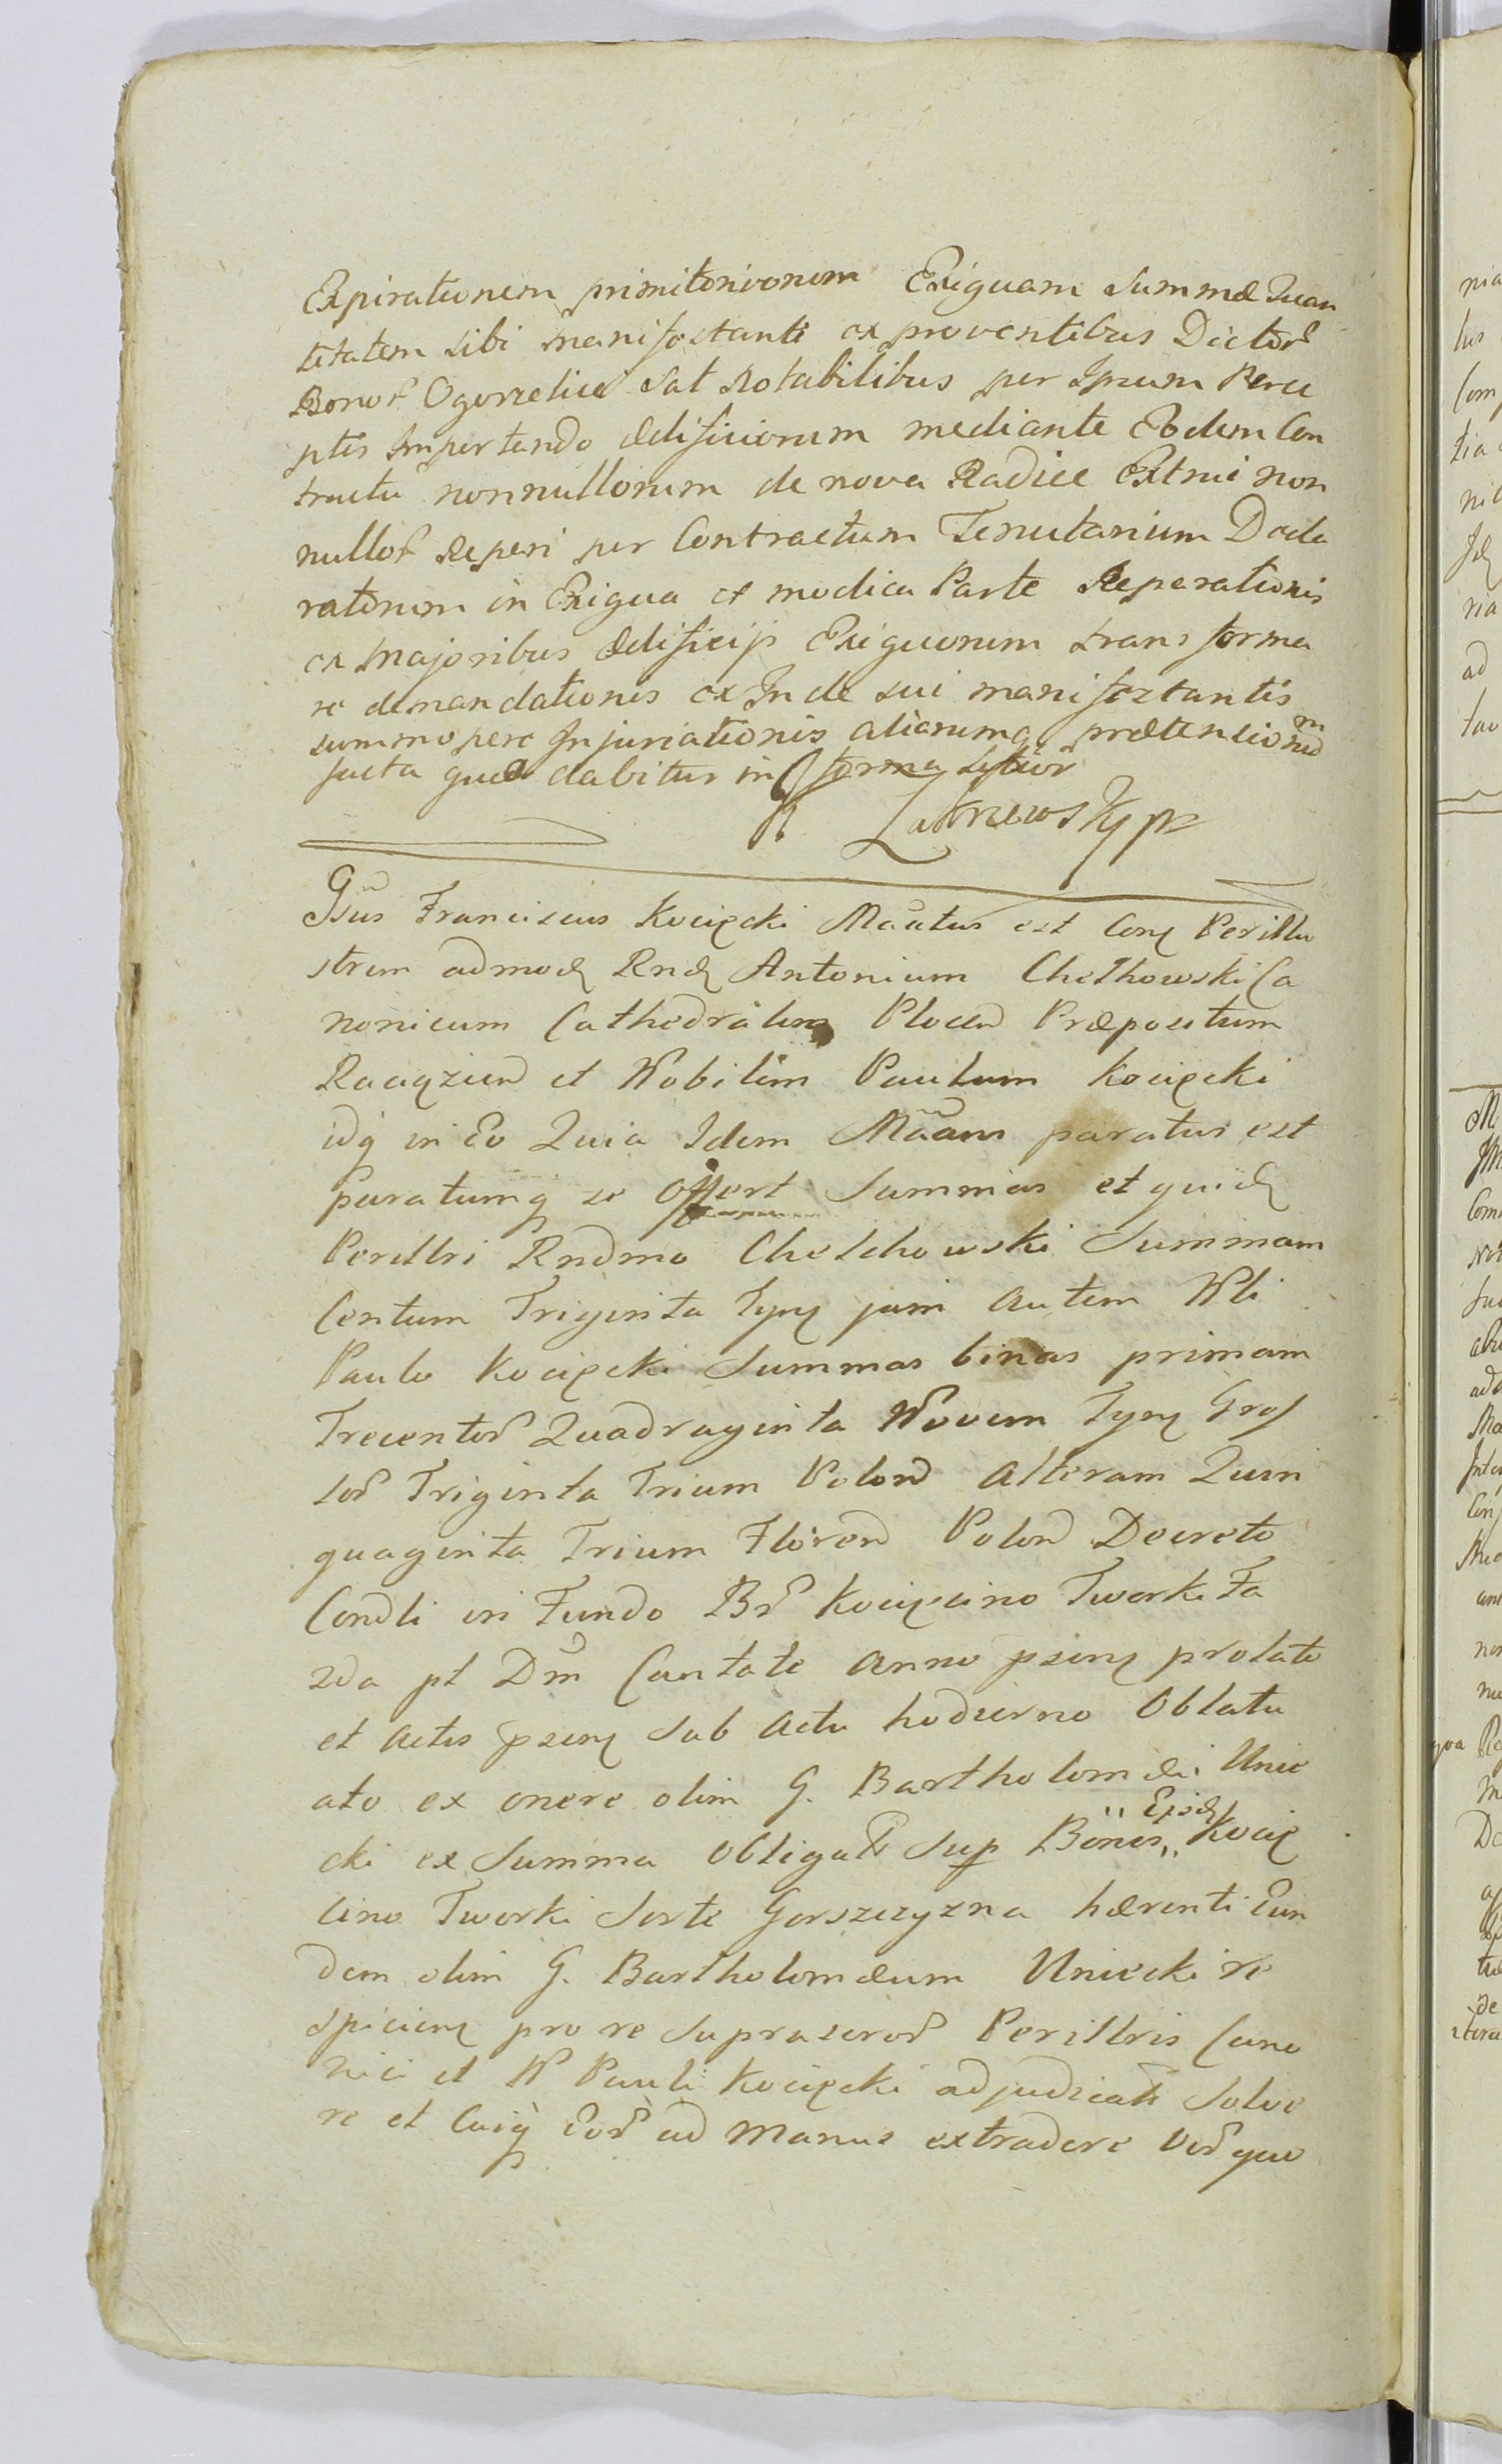 Expirationem primitorivorum Exiguam Summæ Quan
titatem sibi manifestanti ex proventibus Dictor
Bonor Ogorzelice sat Notabilibus per Ipsum Perce
ptis Impertendo Ædificiorum mediante Eodem Con
tractu nonnullorum de nova Radice Extrui non
nullor Reperi per Contractum Tenutarium Decla
ratorum in Exigua et modica Parte Reparationis
ex Majoribus Ædificijs Exiguorum transforma
re demandationis ex Inde sui manifestantis
summopere Injuriationis aliarumq prætensionum
facta quæ dabitur in forma
Zakrzewski
Gsus Franciscus Kocięcki Mãtus est Conq Perillu
strem admod Rnd Antonium Chełkowski Ca
nonicum Cathedralem Plocen Præpositum
Raciązien et Nobilem Paulum Kocięcki
idq in Eo Quia Idem Mãans paratus est
paratumq se offert Summas et quid
Perillri Rndmo Chelchowski Summam
Centum Triginta Tynf jam autem Nli
Paulo Kocięcki Summas binas primam
Trecentor Quadraginta Novem Tynf Gros
sor Triginta Trium Polon Alteram Quin
quaginta Trium Floren Polon Decreto
Condli in Fundo Br Kocięcino Tworki Fa
ria 2da pt Dm Cantate Anno psenq prolato
et Actis psenq sub Actu hodierno Oblatu
ato ex onere olim G. Bartholomæi Uniec
cki ex Summa Obligat Sup Bonis Ejsd Kocię
cino Tworki Sorte Gorszczyzna hærenti Eun
dem olim G. Bartholomæum Uniecki re
spicienq pro re suprascror Perillris Cano
nici et N Pauli Kocięcki adjudicat Solve
re et Cuiq Eor ad Manus extradere Vor quo